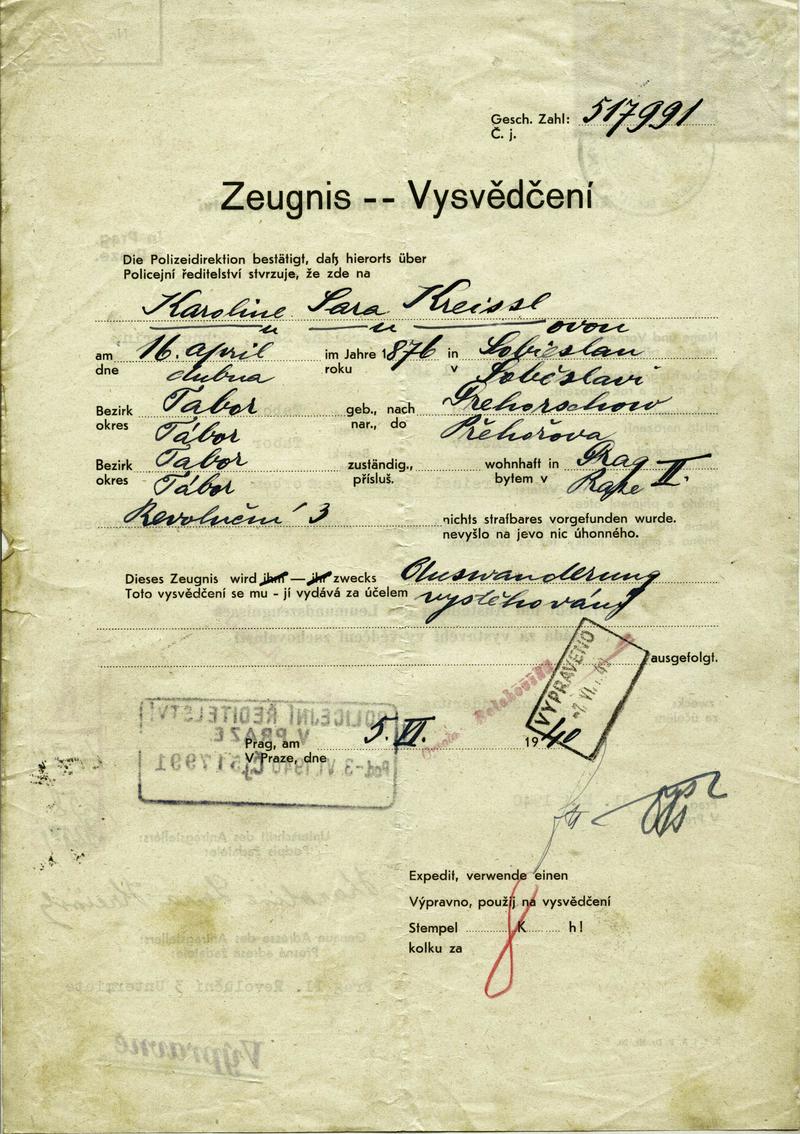 Gesch. Zahl: 517991
Č. j.
Zeugnis -- Vysvědčení
Die Polizeidirektion bestätigt, daß hierorts über
Policejní ředitelství stvrzuje, že zde na
Karoline Sara Kreissl
u u ovou
am 16. april im Jahre 1876 in Sobieslau
dne dubna roku v Soběslavi
Bezirk Tábor geb., nach Přehorschow
okres Tábor nar., do Přehořova
Bezirk Tabor zuständig., wohnhaft in Prag II.
okres Tábor přísluš. bytem v Praze
Revoluční 3 nichts strafbares vorgefunden wurde.
nevyšlo na jevo nic úhonného.
Dieses Zeugnis wird ihm — ihr zwecks Auswanderung
Toto vysvědčení se mu - jí vydává za účelem vystěhování
ausgefolgt.
VYPRAVENO
-7. VI.
POLICEJNÍ ŘEDITELSTVÍ
V PRAZE
Pod -3. VI. 1940 Čj 517991
Prag, am 5. VI. 1940
V Praze, dne
Expedit, verwende einen
Výpravno, použij na vysvědčení
Stempel K h!
kolku za 8
Výpravně